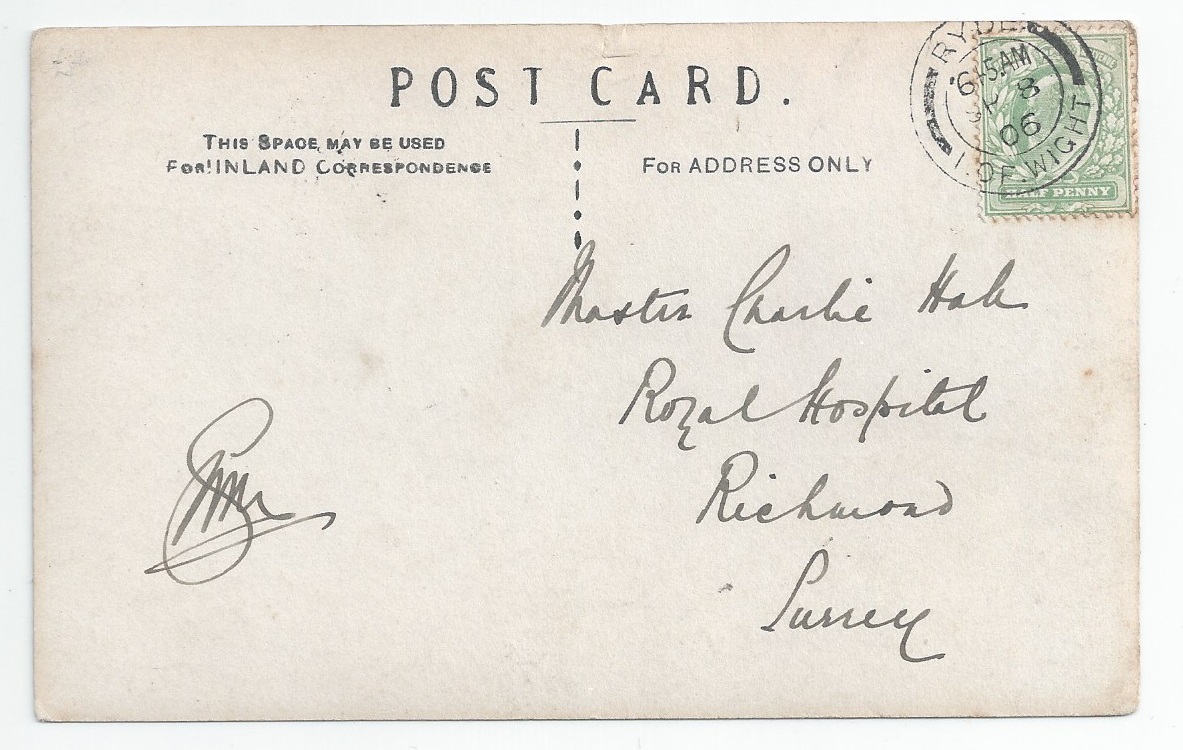 POST CARD.
THIS SPACE MAY BE USED
FOR INLAND CORRESPONDENCE
FOR ADDRESS ONLY
RYDE
6-5.AM
8
06
I. OF WIGHT
HALF PENNY
Master Charlie Hale
Royal Hospital
Richmond
Surrey